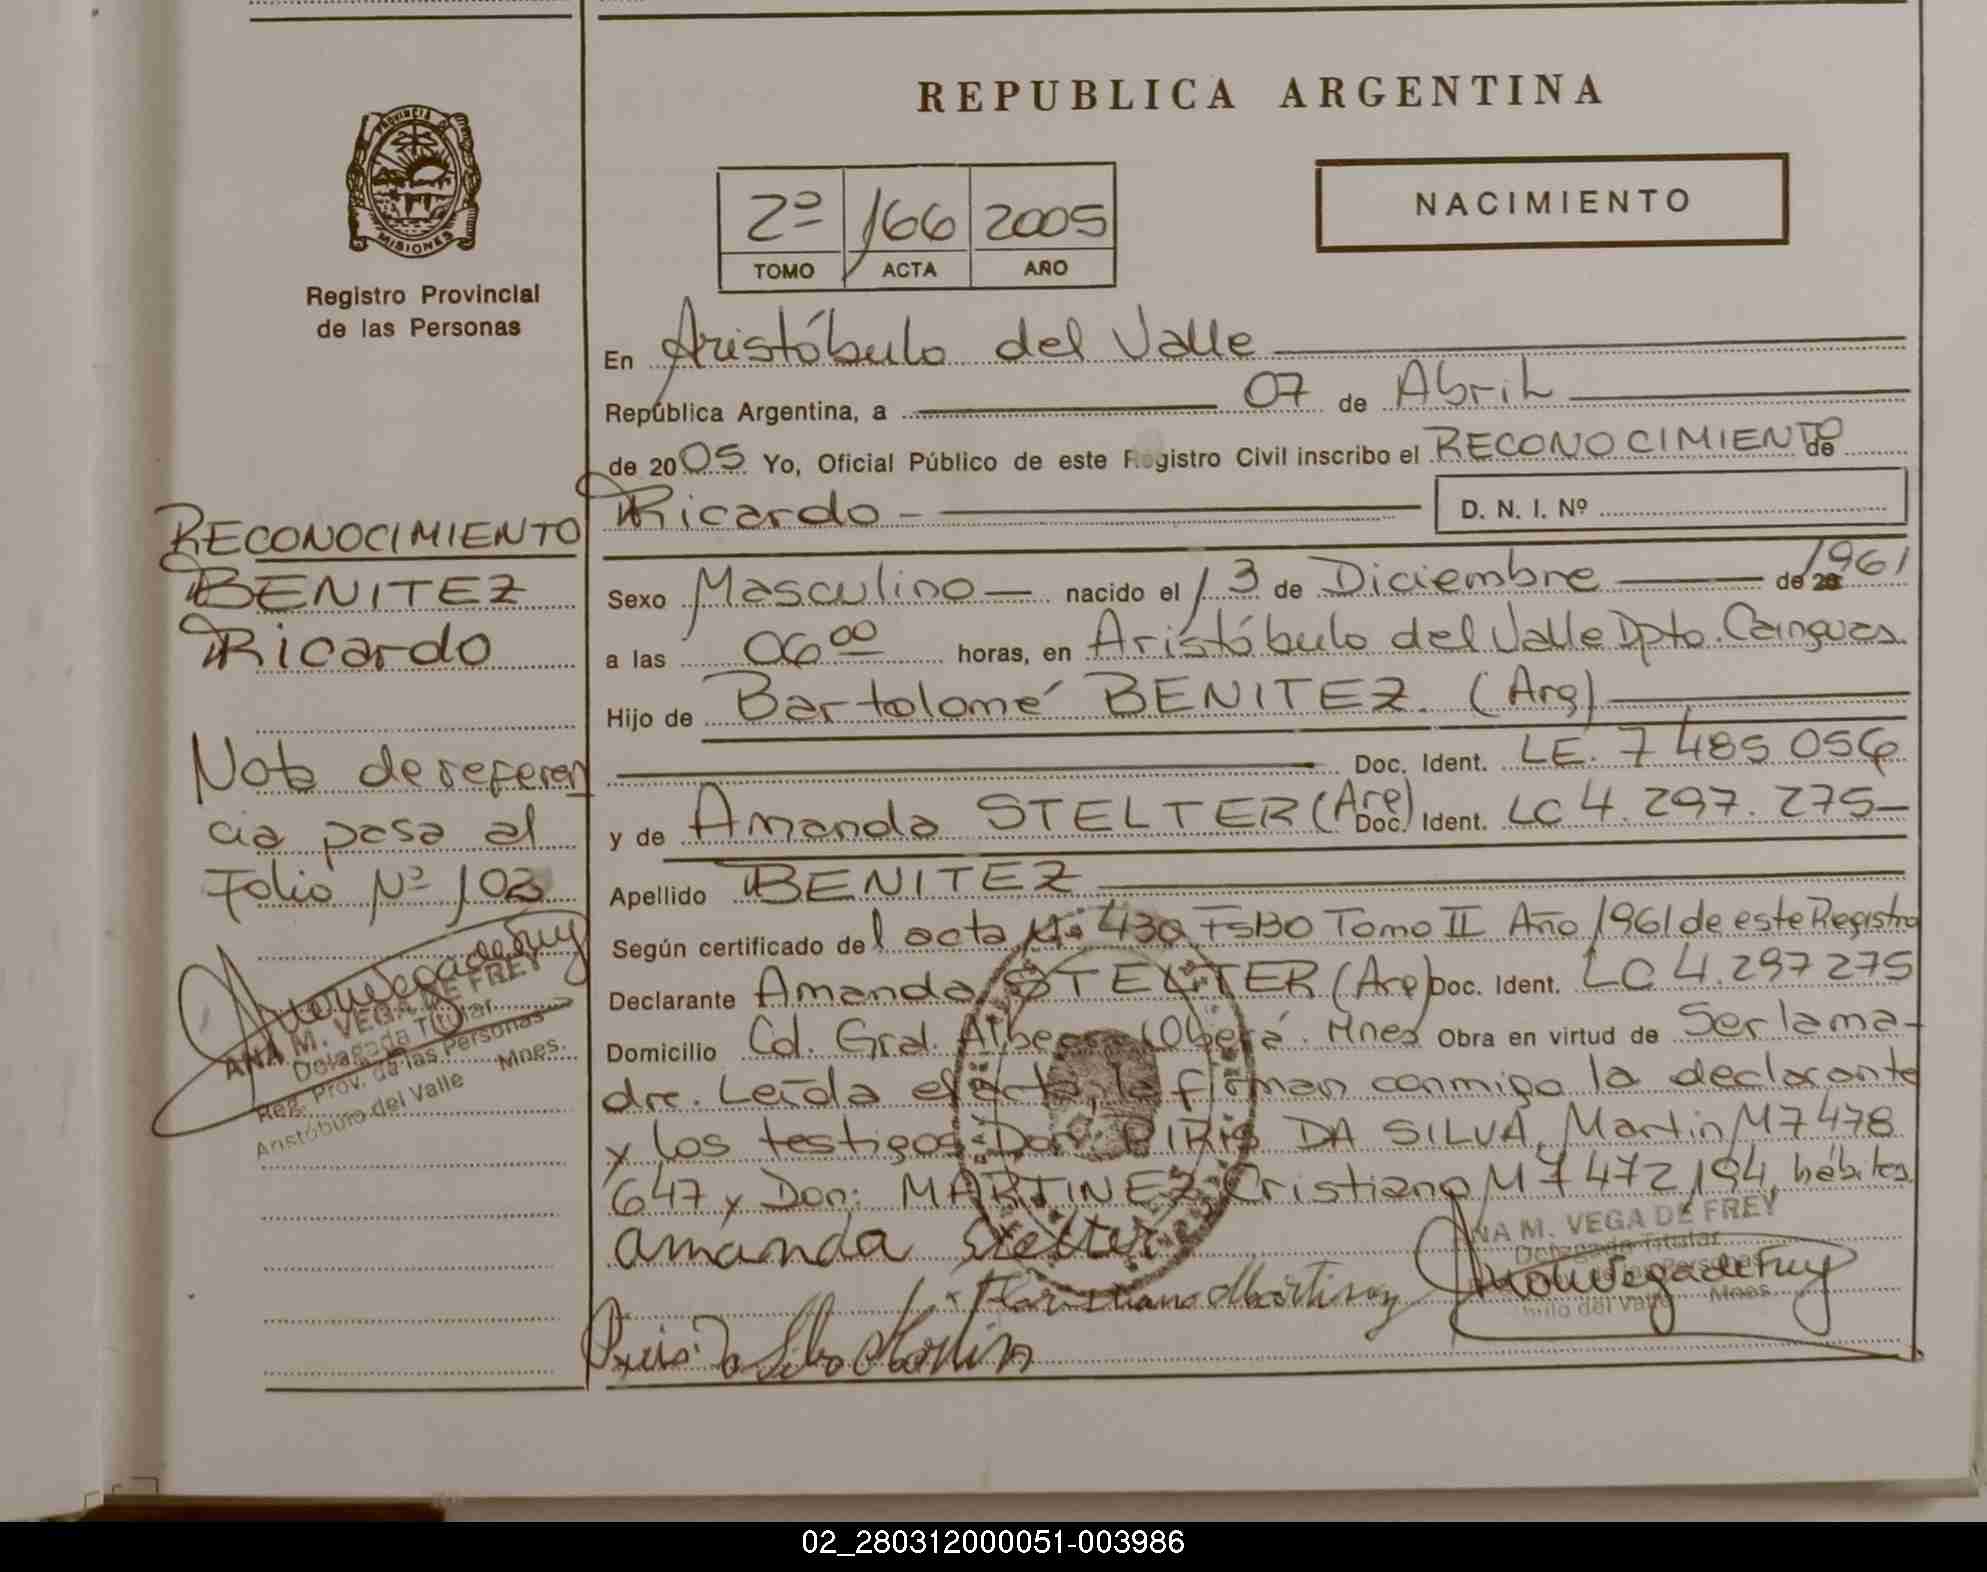 REPUBLICA ARGENTINA
PROVINCIA DE
MISIONES
Registro Provincial
de las Personas
2º 166 2005
TOMO ACTA AÑO
NACIMIENTO
En Aristóbulo del Valle
República Argentina, a 07 de Abril
de 2005 Yo, Oficial Público de este Registro Civil inscribo el RECONOCIMIENTO de
Ricardo - D. N. I. Nº
Sexo Masculino nacido el 13 de Diciembre de 1961
a las 06 00 horas, en Aristóbulo del Valle Dpto. Cainguas.
Hijo de Bartolomé BENITEZ. (Arg)
Doc. Ident. LE. 7 485 056
y de Amanda STELTER (Arg) Doc. Ident. LC 4.297.275-
Apellido BENITEZ
Según certificado del acta Nº 430 Fs 130 Tomo II Año 1961 de este Registro
Declarante Amanda STELTER (Arg) Doc. Ident. LC 4.297 275
Domicilio Cd. Gral. Oberá. Mnes Obra en virtud de Ser la ma-
dre. Leída el acta, la firman conmigo la declarante
y los testigos Don: PIRIS DA SILVA, Martin M7 478
647 y Don: MARTINEZ Cristiano M 7 472 194, hábiles
amanda stelter
ANA M. VEGA DE FREY
Delegada Titular
bulo del Valle Mnes.
RECONOCIMIENTO
BENITEZ
Ricardo
Nota de referen
cia pasa al
Folio Nº 103
ANA M. VEGA DE FREY
Delegada Titular
Reg. Prov. de las Personas
Aristóbulo del Valle Mnes.
02_280312000051-003986